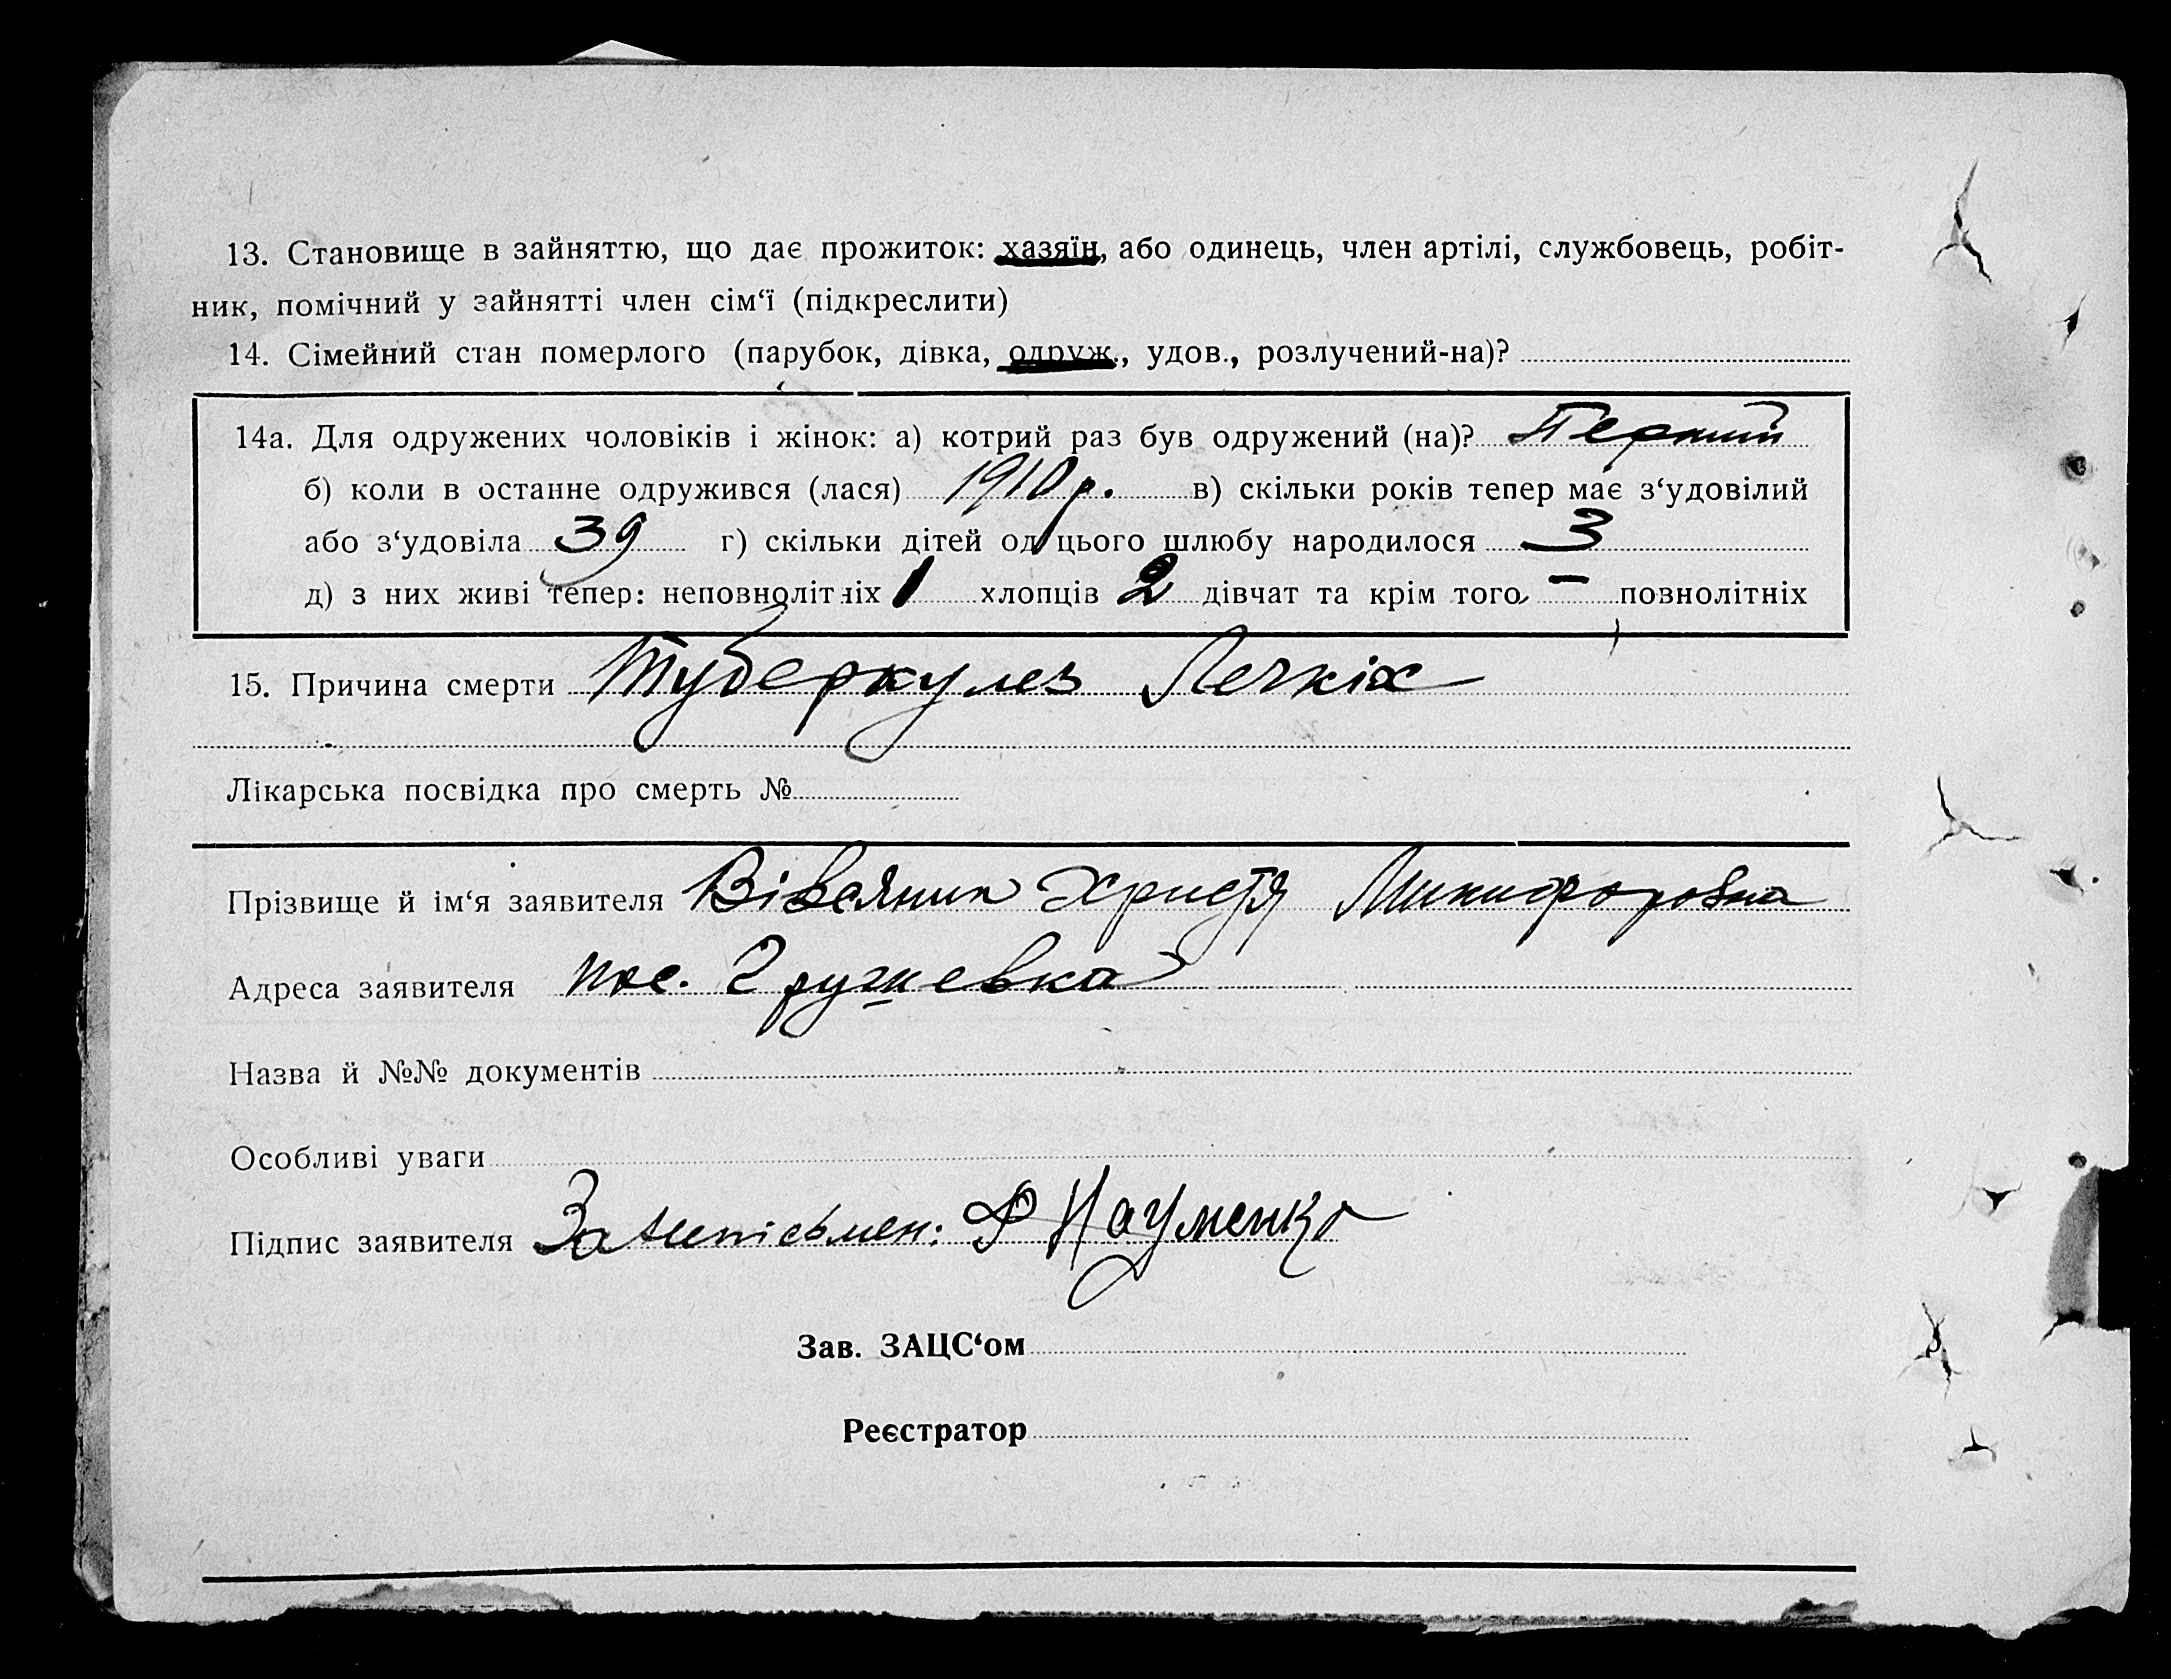 13. Становище в зайняттю, що дає прожиток: хазяїн, або одинець, член артілі, службовець, робіт-
ник, помічний у зайнятті член сім‘ї (підкреслити)
14. Сімейний стан померлого (парубок, дівка, одруж., удов., розлучений-на)?
14а. Для одружених чоловіків і жінок: а) котрий раз був одружений (на)? Перший
б) коли в останнє одружився (лася) 1910 р. в) скільки років тепер має з‘удовілий
або з‘удовіла 39 г) скільки дітей од цього шлюбу народилося 3
д) з них живі тепер: неповнолітніх 1 хлопців 2 дівчат та крім того, — повнолітніх
15. Причина смерти Туберкулез Легкіх
Лікарська посвідка про смерть №
Прізвище й ім‘я заявителя Христя Микифоровна
Адреса заявителя пос. Грушевка
Назва й №№ документів
Особливі уваги
Підпис заявителя За неписьмен: Ф Науменко
Зав. ЗАЦС‘ом
Реєстратор